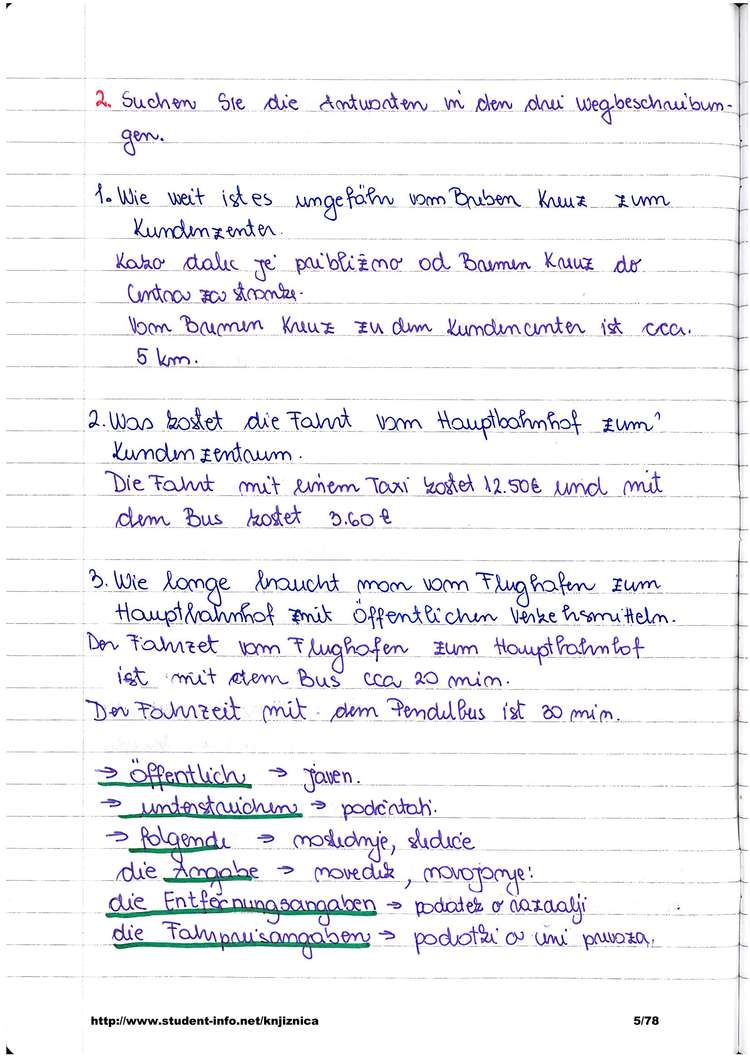 2. Suchen Sie die Antworten in den drei Wegbeschreibun-
gen.
1. Wie weit ist es ungefähr vom Breben Kreuz zum
Kundenzenter.
Kako daleč je približno od Bremen Kreuz do
Centra za stranke.
Vom Bremen Kreuz zu dem Kundencenter ist cca.
5 km.
2. Was kostet die Fahrt vom Hauptbahnhof zum
Kundenzentrum.
Die Fahrt mit einem Taxi kostet 12.50€ und mit
dem Bus kostet 3.60 €
3. Wie lange braucht man vom Flughafen zum
Hauptbahnhof mit Öffentlichen Verkehsmitteln.
Der Fahrzet vom Flughafen zum Hauptbahnhof
ist mit dem Bus cca 20 min.
Der Fahrzeit mit dem Pendelbus ist 30 min.
→ Öffentlich → javen.
→ unterstreichen → podčrtati.
→ folgende → naslednje, sledeče
die Angabe → navedek, navajanje!
die Entfernungsangaben → podatek o razdalji
die Fahrpreisangaben → podatki o ceni prevoza.
http://www.student-info.net/knjiznica
5/78